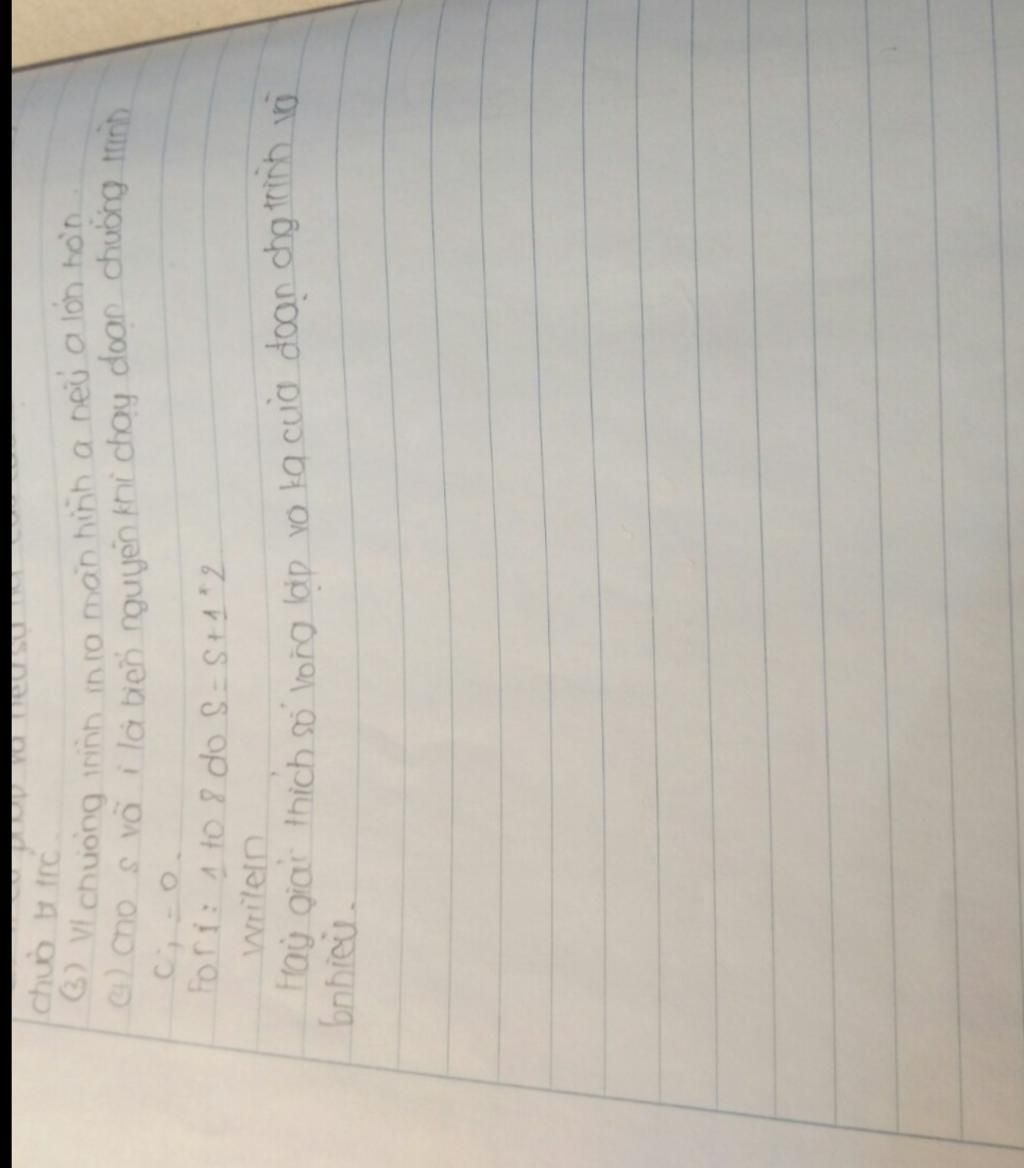 chưa trc
(3) Vi chương trình in ra màn hình a nếu a lớn hơn
(4) cho s và i là biến nguyên khi chạy đoạn chương trình
:=0.
For i: 1 to 8 do S= S+1*2
writeln
Hãy giải thích số vòng lặp và kq của đoạn chg trình và
bnhiêu.